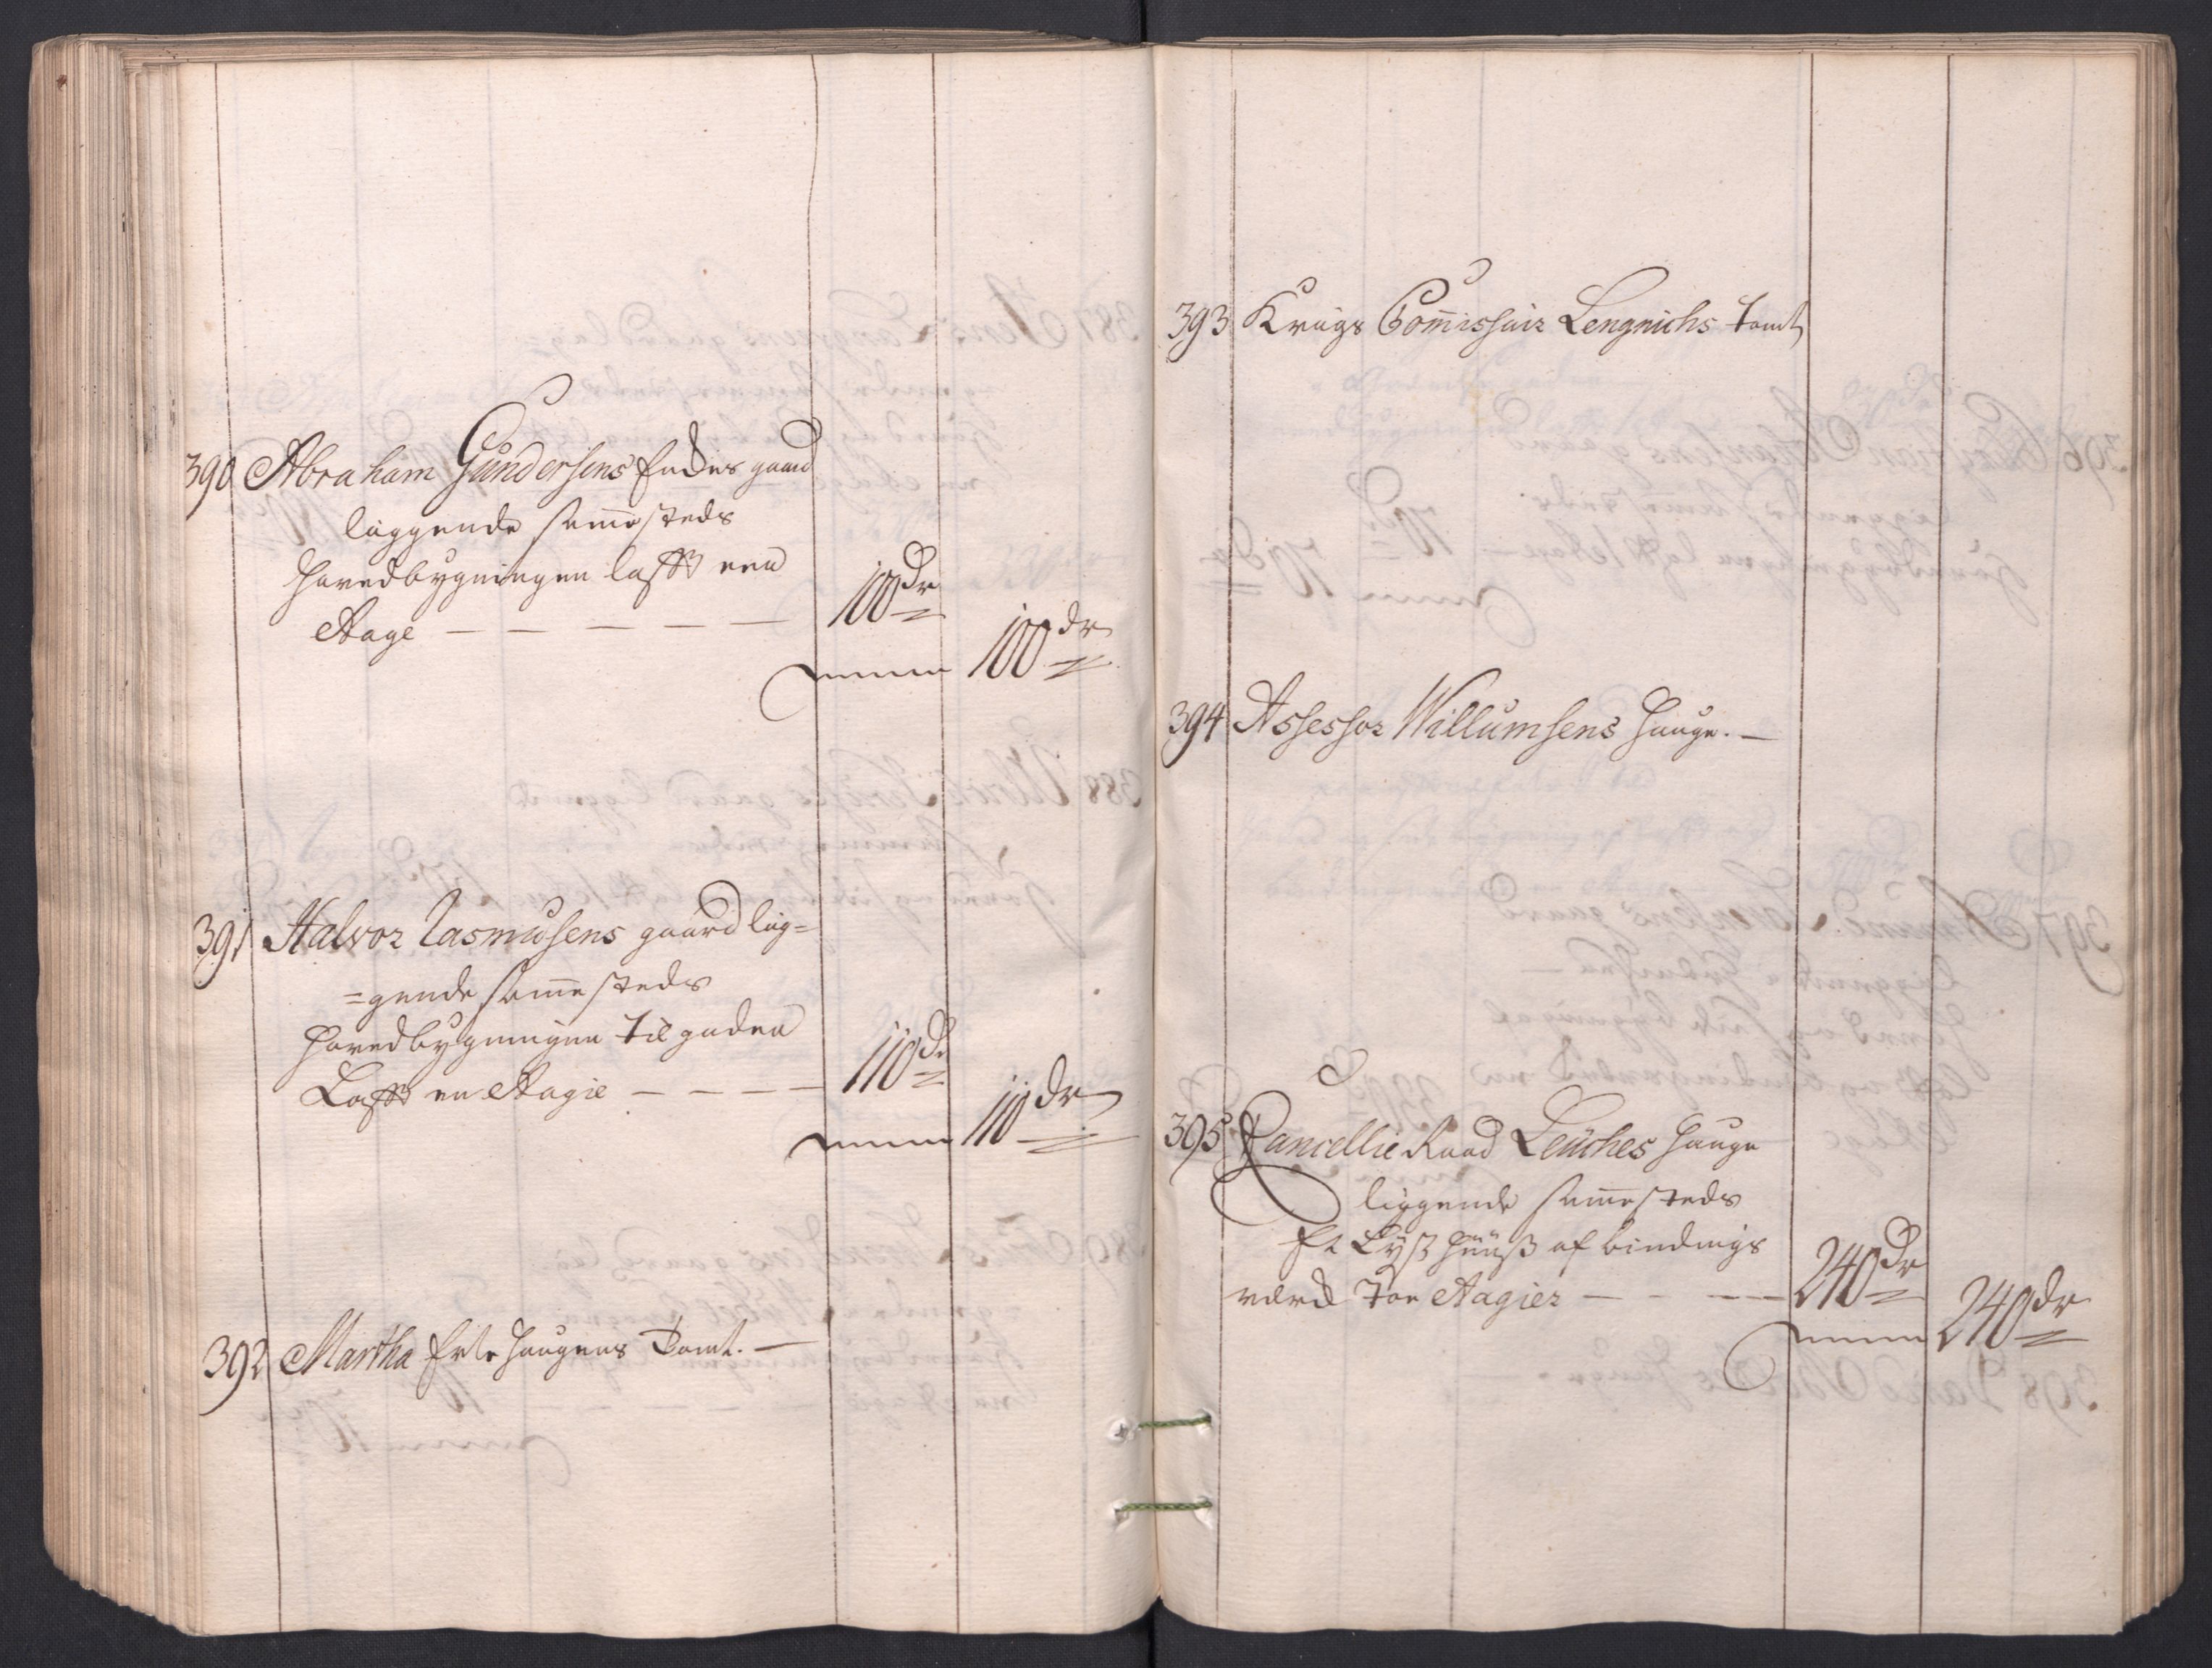 390 Abraham Gundersens Endes gaard
liggende sam̅esteds
Hovedbygningen lafft een
Etage — — — — — 100 dr
100 dr
391 Halvor Rasmusens gaard lig=
=gende sam̅esteds
Hovedbygningen til gaden
Lafft en Etagie — — — — 110 dr
110 dr
392 Martha Erle Haugens Tomt. —
393 Krigs Com̅issair Lengnichs tomt
394 Assessor Willumsens Hauge. —
395 Cancellie Raad Leuches Hauge
liggende sam̅esteds
Et Lyst Huuß af bindings
verck Toe Etagier — — — — 240 dr
240 dr